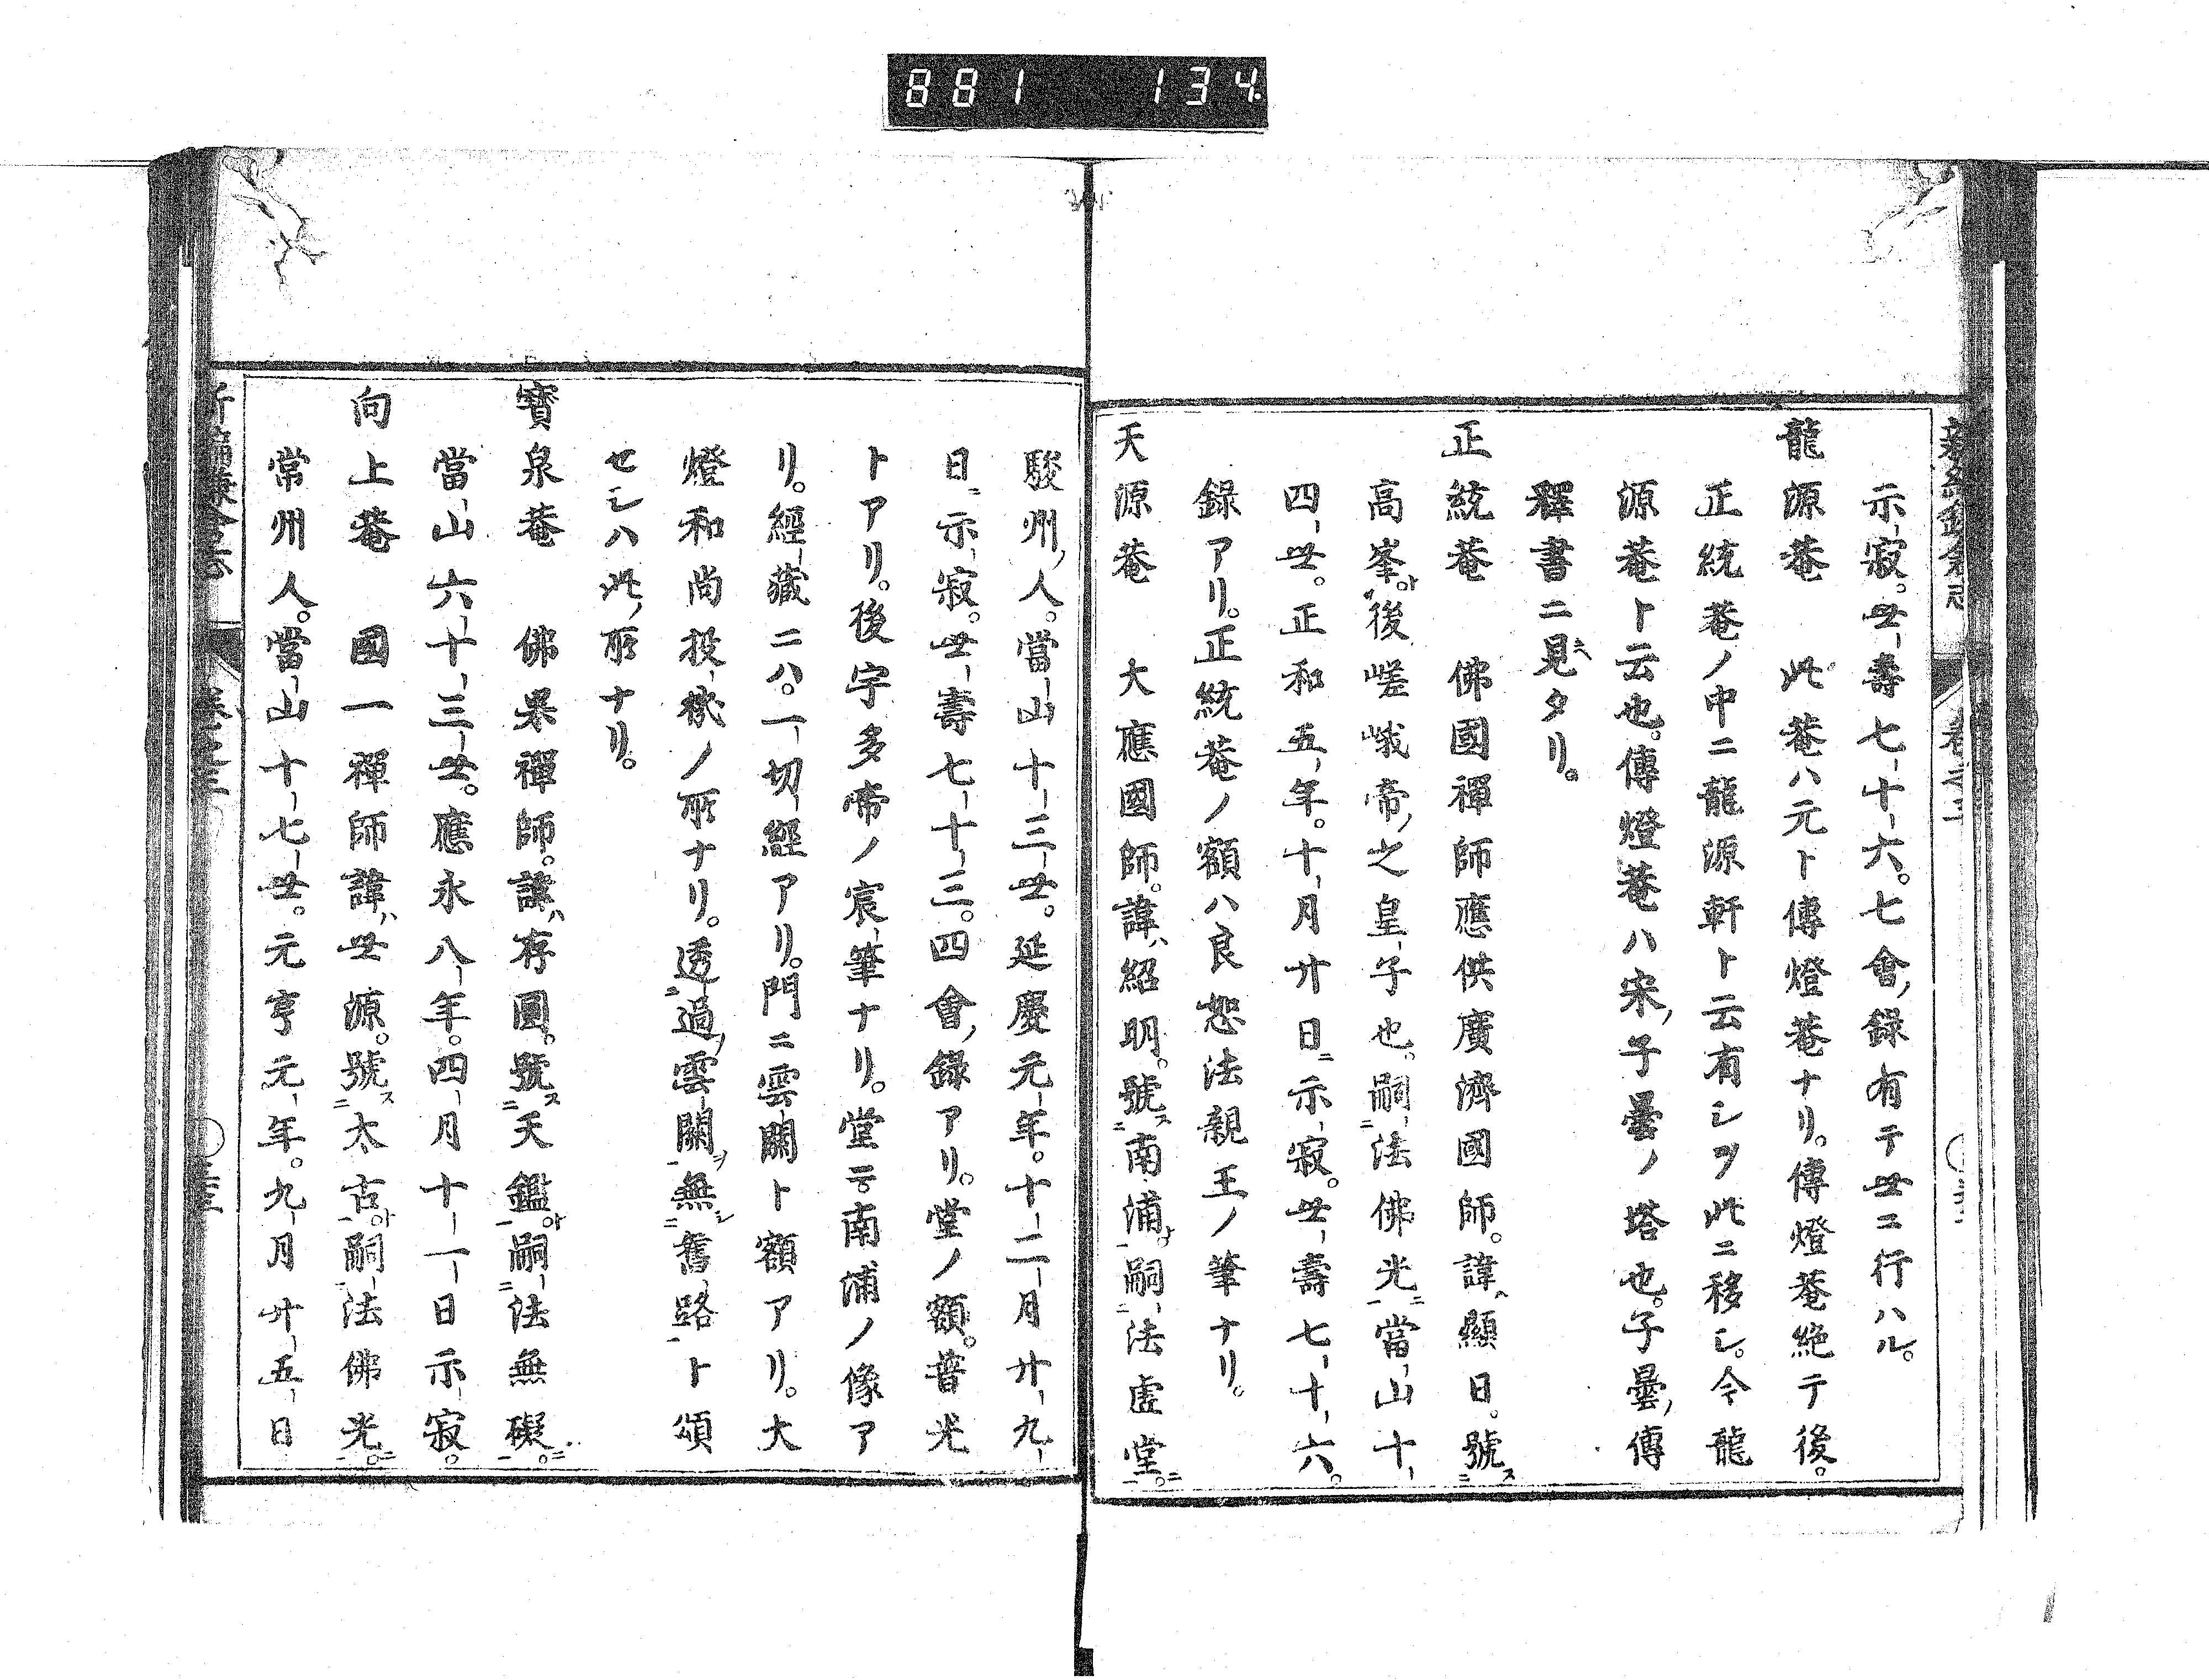 881 134
示寂。世壽七十六。七會ノ録有テ世ニ行ハル。
龍源菴 此菴ハ元ト傳燈菴ナリ。傳燈菴絶テ後。
正統菴ノ中ニ龍源軒ト云有シヲ此ニ移シ。今龍
源菴ト云也。傳燈菴ハ宋ノ子曇ノ塔也。子曇ノ傳
釋書ニ見ヘタリ。
正統菴 佛國禪師應供廣濟國師。諱ハ顯日。號ス
高峯ト。後嵯峨帝ノ之皇子也。嗣法佛光ニ。當山十
四世。正和五年。十月廿日ニ示寂。世壽七十六。
録アリ。正統菴ノ額ハ良恕法親王ノ筆ナリ。
天源菴 大應國師。諱ハ紹明。號ス南浦ト。嗣法虚堂ニ。
駿州ノ人。當山十三世。延慶元年。十二月廿九
日ニ示寂。世壽七十三。四會ノ録アリ。堂ノ額。普光
トアリ。後宇多帝ノ宸筆ナリ。堂ニ南浦ノ像ア
リ。經藏ニハ。一切經アリ。門ニ雲關ト額アリ。大
燈和尚投機ノ所ナリ。透過ノ雲關ヲ無シ舊路ト頌
セシハ此ノ所ナリ。
寶泉菴 佛果禪師。諱ハ存圓。號ス天鑑ト。嗣法無礙ニ。
當山六十三世。應永八年。四月十一日示寂。
向上菴 國一禪師諱ハ世源。號ス太古ト。嗣法佛光ニ。
常州人。當山十七世。元亨元年。九月廿五日